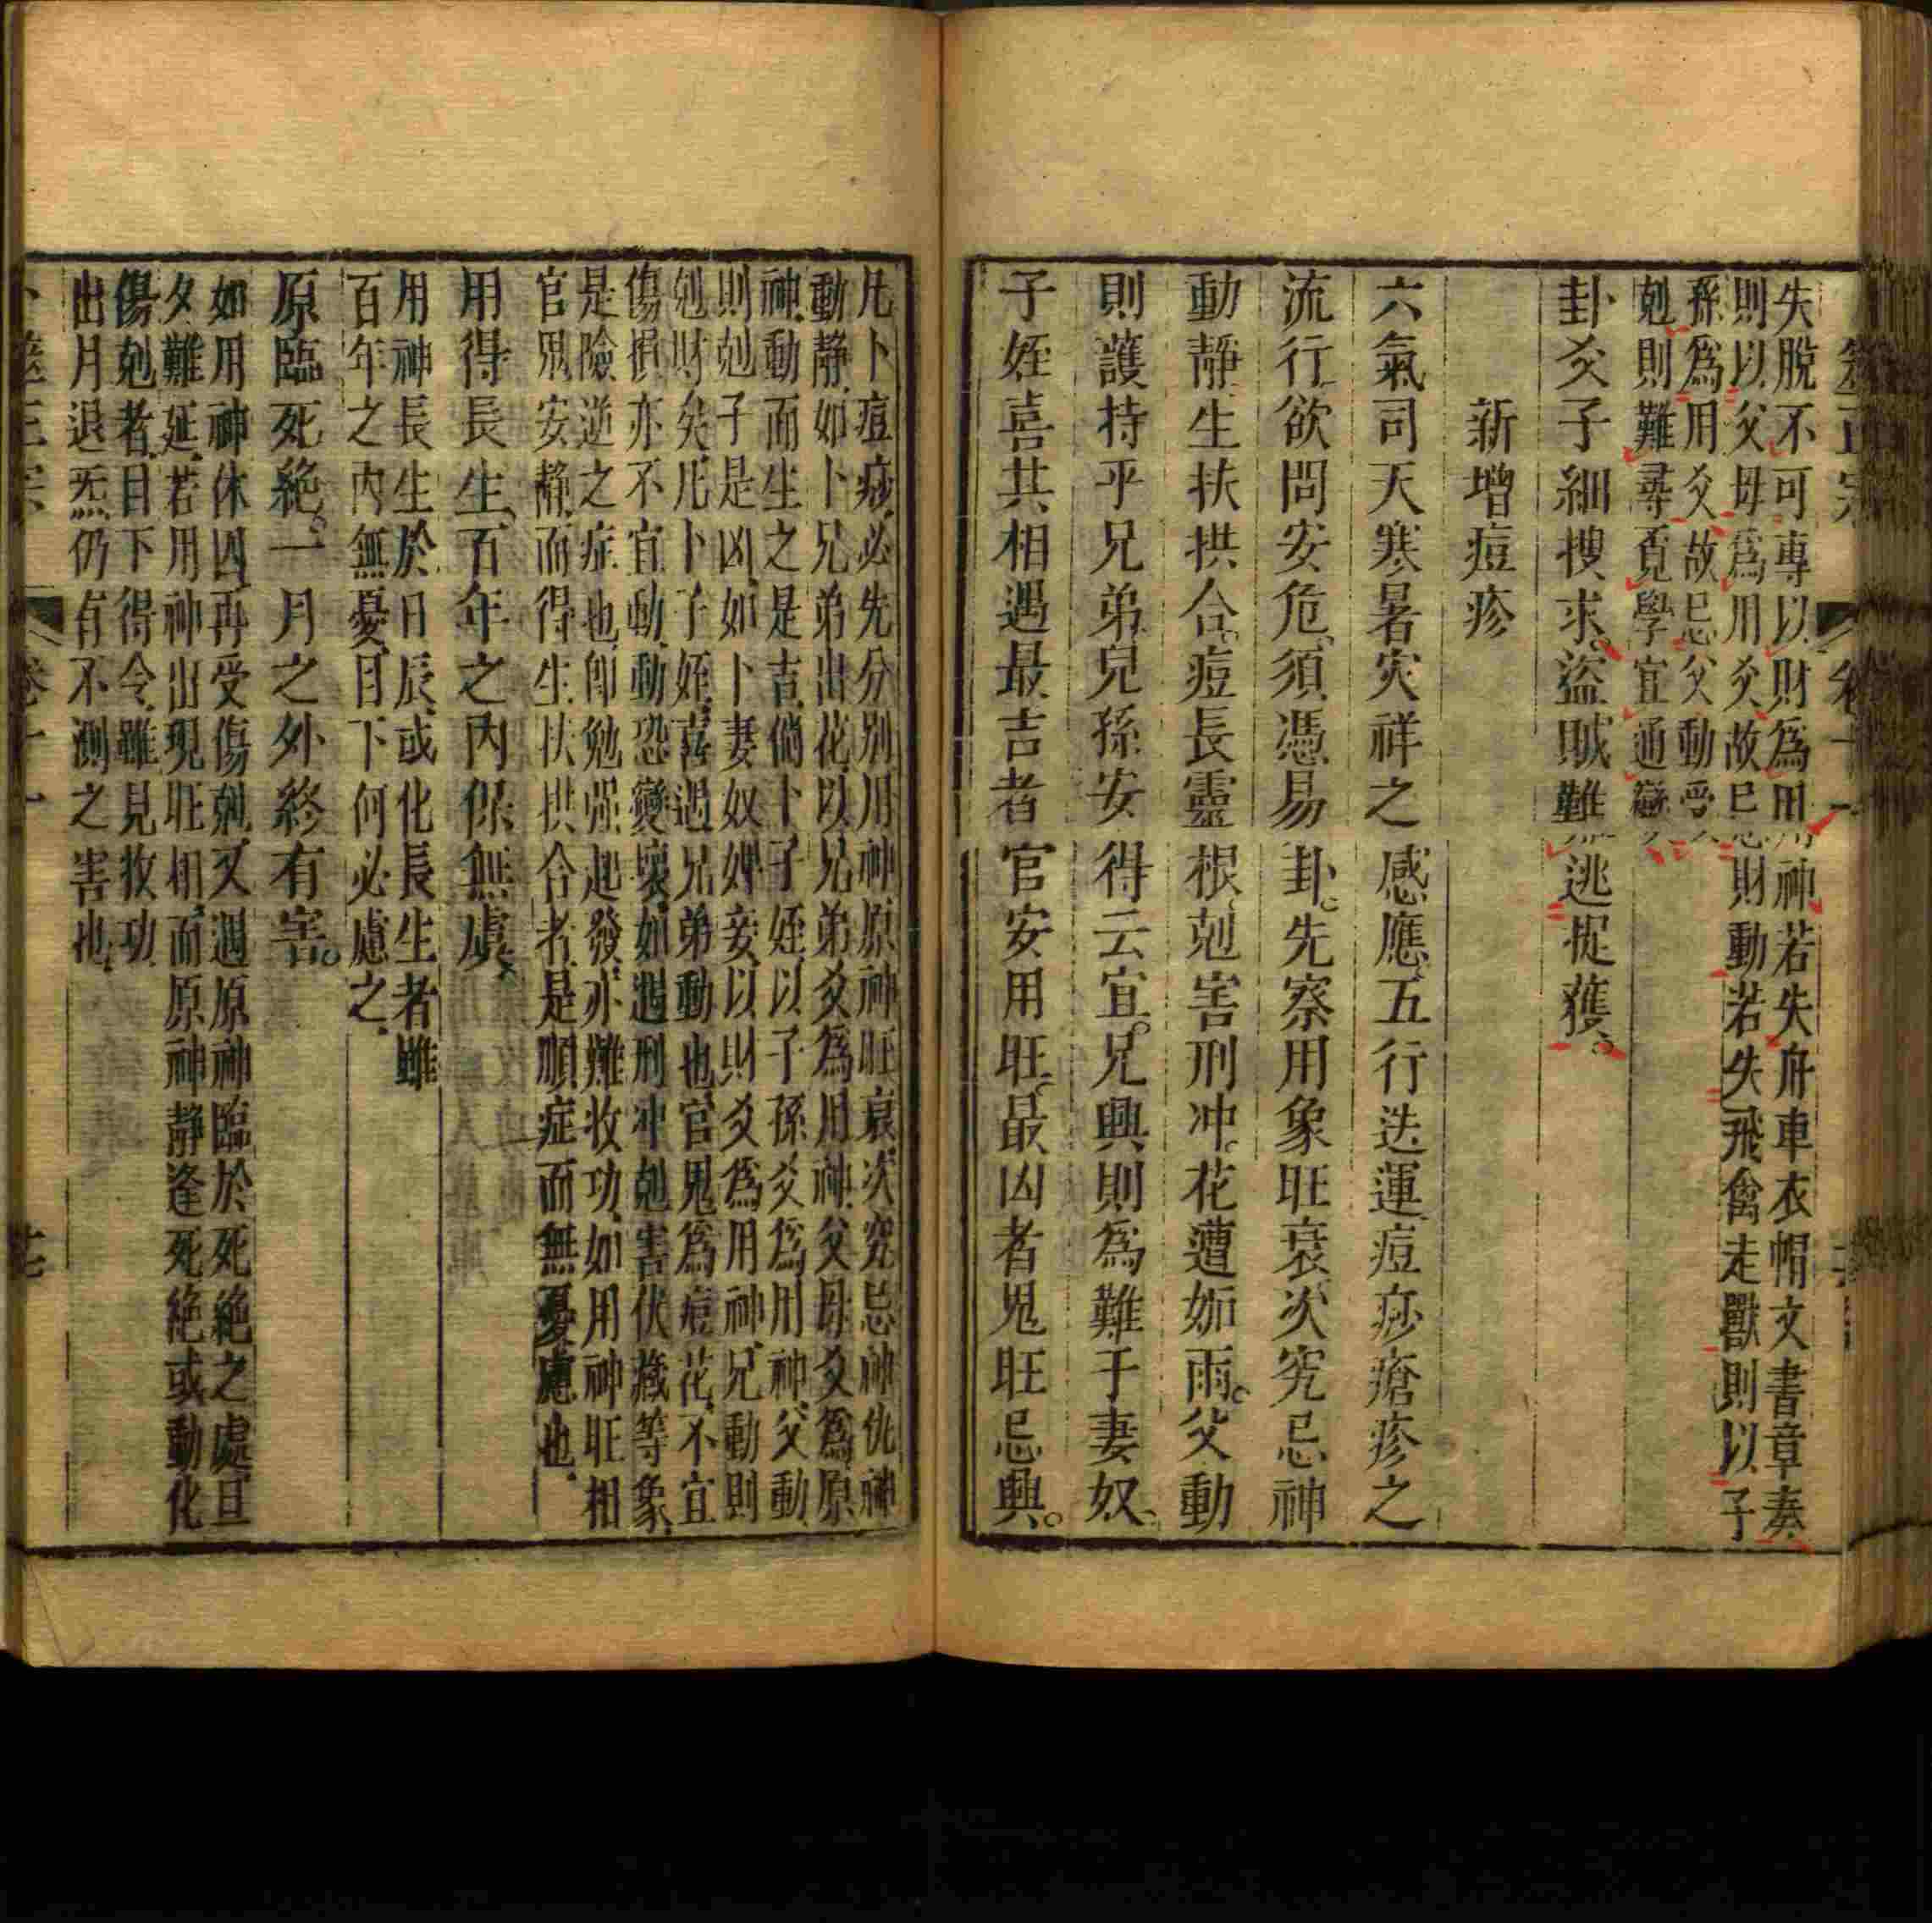 筮正宗 卷十一
失脫不可專以財爲用神若失舟車衣帽文書章奏
則以父母爲用爻故忌財動若失飛禽走獸則以子
孫爲用爻故忌父動受
剋則難尋覓學宜通變
卦爻子細搜求盜賊難逃捉獲
新增痘疹
六氣司天寒暑灾祥之感應五行迭運痘痧瘡疹之
流行欲問安危須憑易卦先察用象旺衰次究忌神
動靜生扶拱合痘長靈根剋害刑冲花遭妬雨父動
則護持乎兄弟兒孫安得云宜兄興則爲難于妻奴
子姪喜其相遇最吉者官安用旺最凶者鬼旺忌興
凡卜痘痧必先分別用神原神旺衰次究忌神仇神
動靜如卜兄弟出花以兄弟爻爲用神父母爻爲原
神動而生之是吉倘卜子姪以子孫爻爲用神父動
則剋子是凶如卜妻奴婢妾以財爻爲用神兄動則
剋財矣凡卜子姪喜遇兄弟動也官鬼爲痘花不宜
傷損亦不宜動動恐變壞如遇刑冲剋害伏藏等象
是險逆之症也卽勉强起發亦難收功如用神旺相
官鬼安靜而得生扶拱合者是順症而無憂慮也
用得長生百年之內保無虞
用神長生於日辰或化長生者雖
百年之內無憂目下何必慮之
原臨死絶一月之外終有害
如用神休囚再受傷剋又遇原神臨於死絶之處旦
夕難延若用神出現旺相而原神靜逢死絶或動化
傷剋者目下得令雖見收功
出月退炁仍有不測之害也
卜筮正宗 卷十一